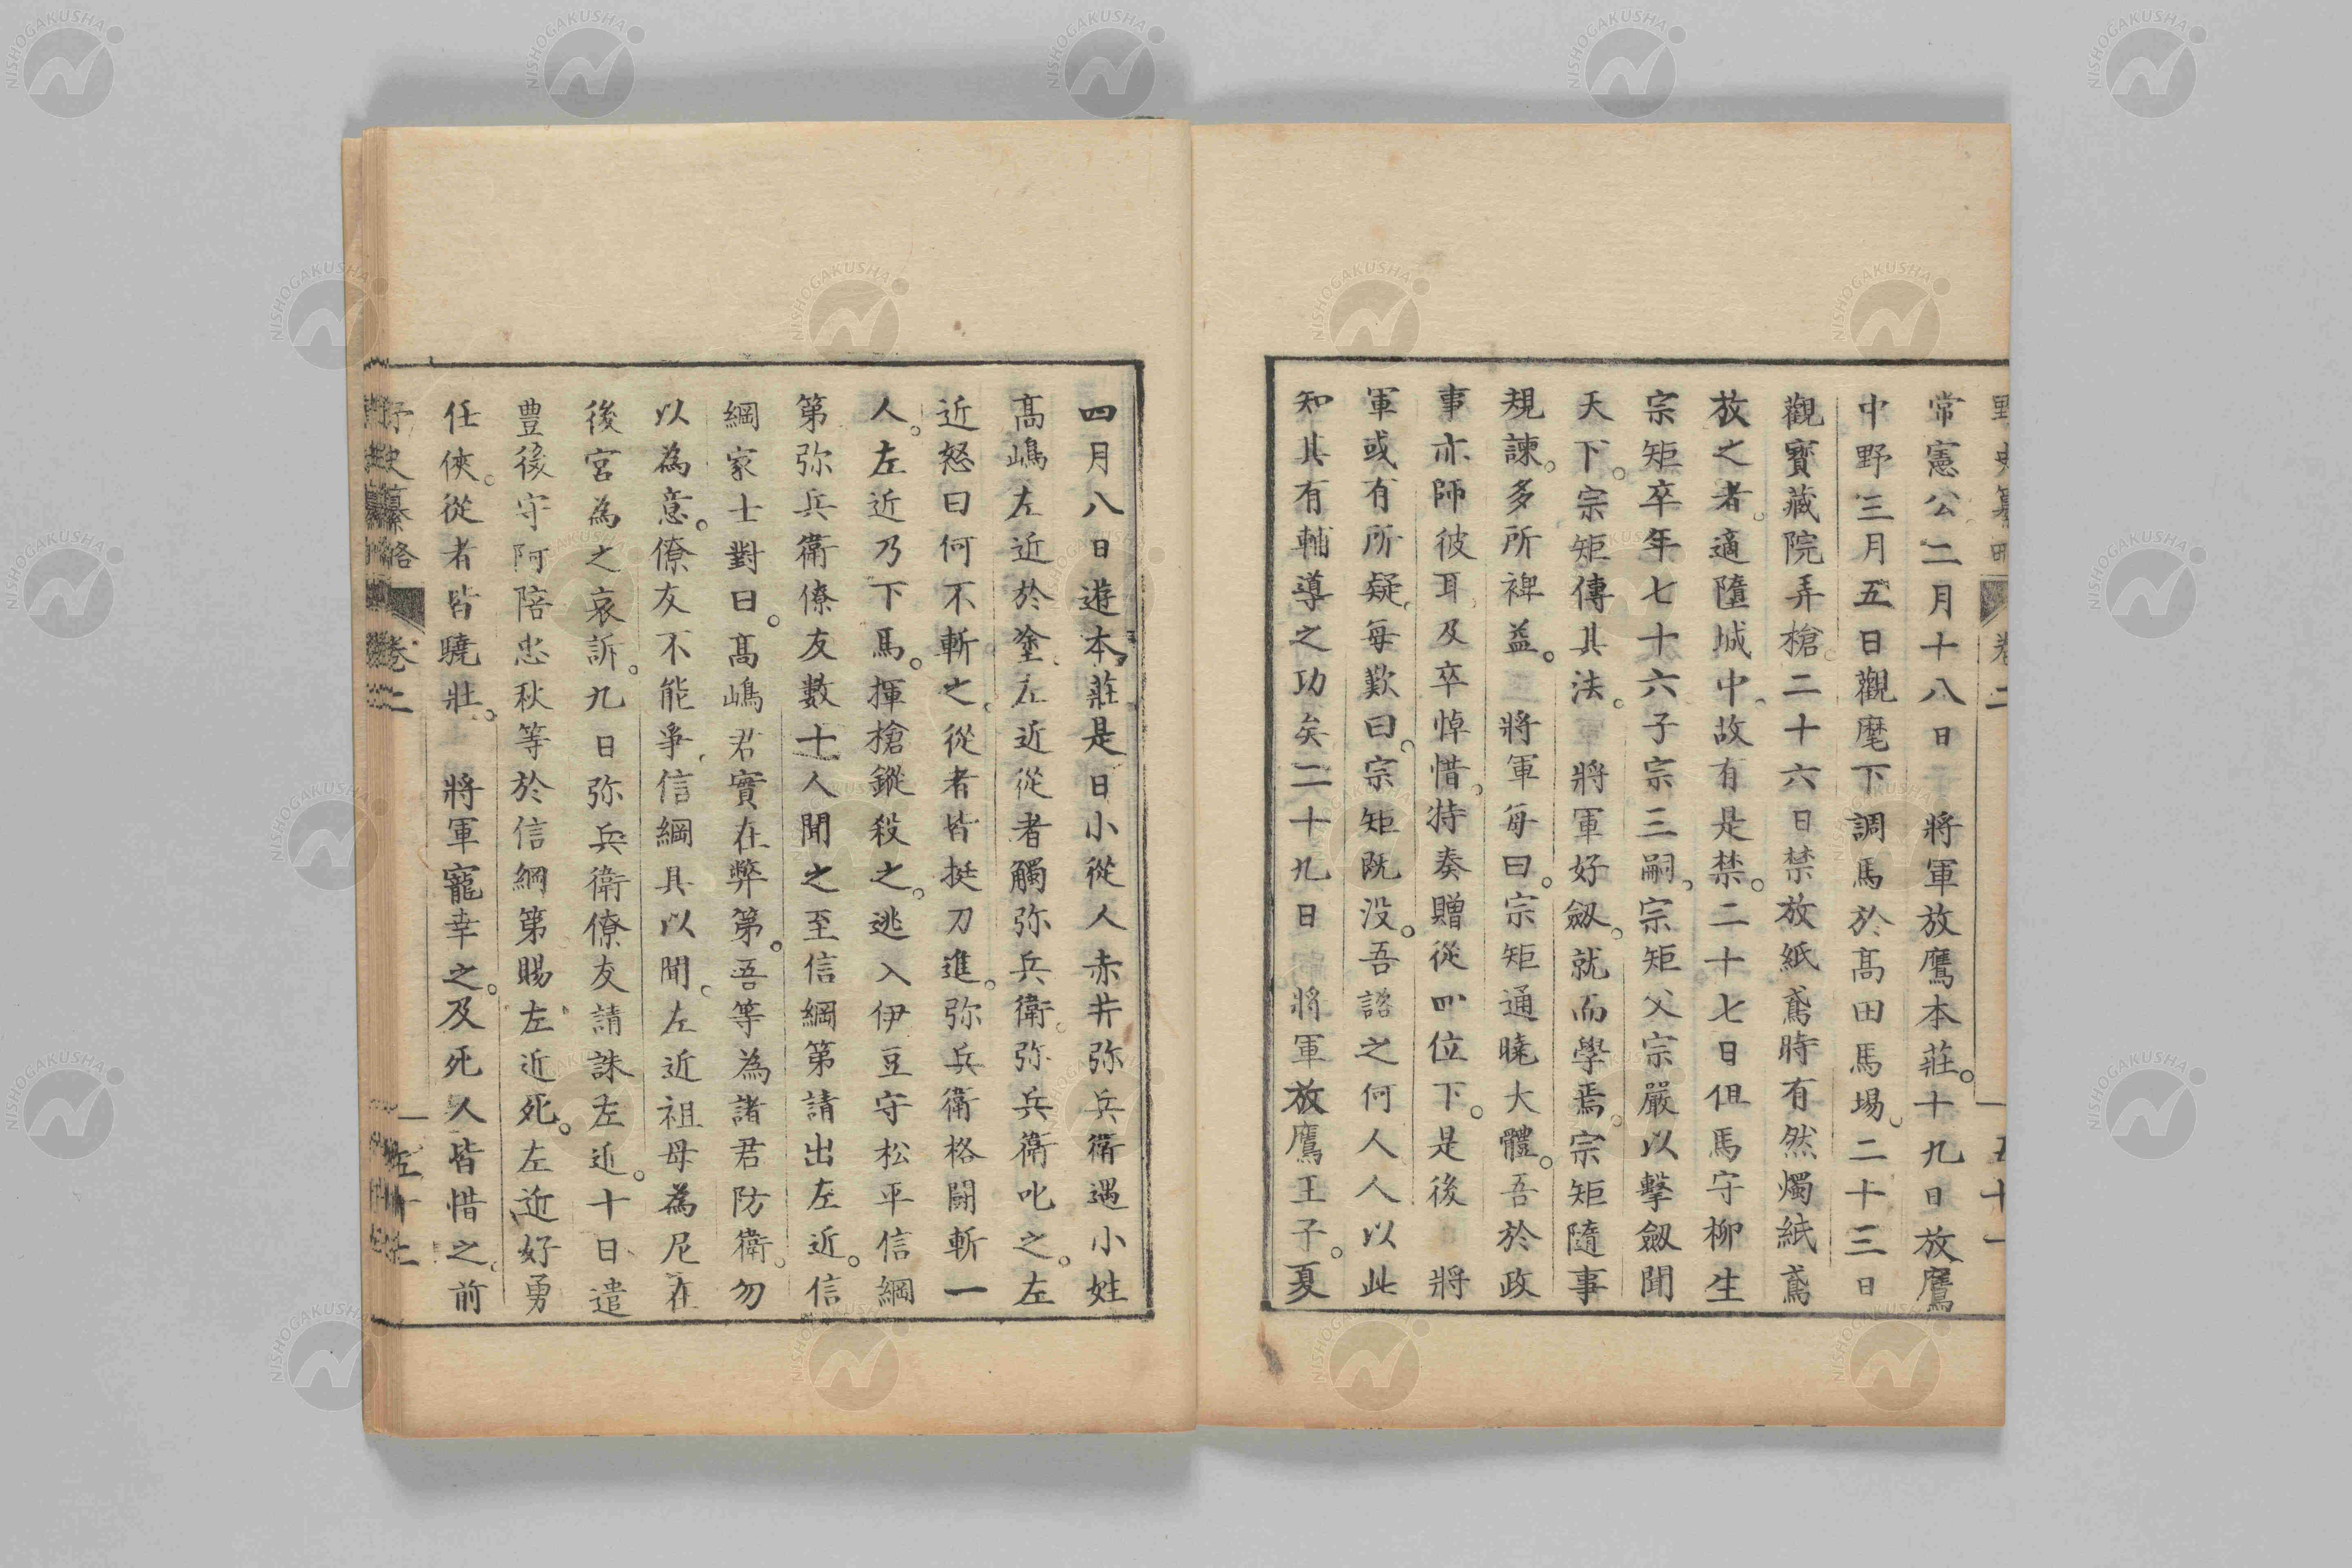 野史纂略 卷二 五十一
常憲公二月十八日 將軍放鷹本莊。十九日放鷹
中野三月五日觀麾下調馬於髙田馬場。二十三日
觀寶藏院弄槍。二十六日禁放紙鳶時有然燭紙鳶
放之者。適墮城中。故有是禁。二十七日但馬守柳生
宗矩卒年七十六子宗三嗣。宗矩父宗嚴以擊劔聞
天下。宗矩傳其法。 將軍好劔。就而學焉。宗矩隨事
規諫。多所裨益。 將軍每曰。宗矩通曉大體。吾於政
事亦師彼耳。及卒悼惜。特奏贈從四位下。是後 將
軍或有所疑。每歎曰。宗矩既没。吾諮之何人人以此
知其有輔導之功矣二十九日 將軍放鷹王子。夏
四月八日遊本莊是日小從人赤井弥兵衛遇小姓
髙嶋左近於塗。左近從者觸弥兵衛。弥兵衛叱之。左
近怒曰何不斬之。從者皆挺刀進。弥兵衛格鬪斬一
人。左近乃下馬。揮槍鏦殺之。逃入伊豆守松平信綱
第弥兵衛僚友數十人聞之至信綱第請出左近。信
綱家士對曰。髙嶋君實在弊第。吾等為諸君防衛。勿
以為意。僚友不能爭。信綱具以聞。左近祖母為尼在
後宮為之哀訴。九日弥兵衛僚友請誅左近。十日遣
豊後守阿陪忠秋等於信綱第賜左近死。左近好勇
任俠。從者皆驍壯。 將軍寵幸之。及死人皆惜之。前
野史纂略 卷二 五十二
NISHOGAKUSHA